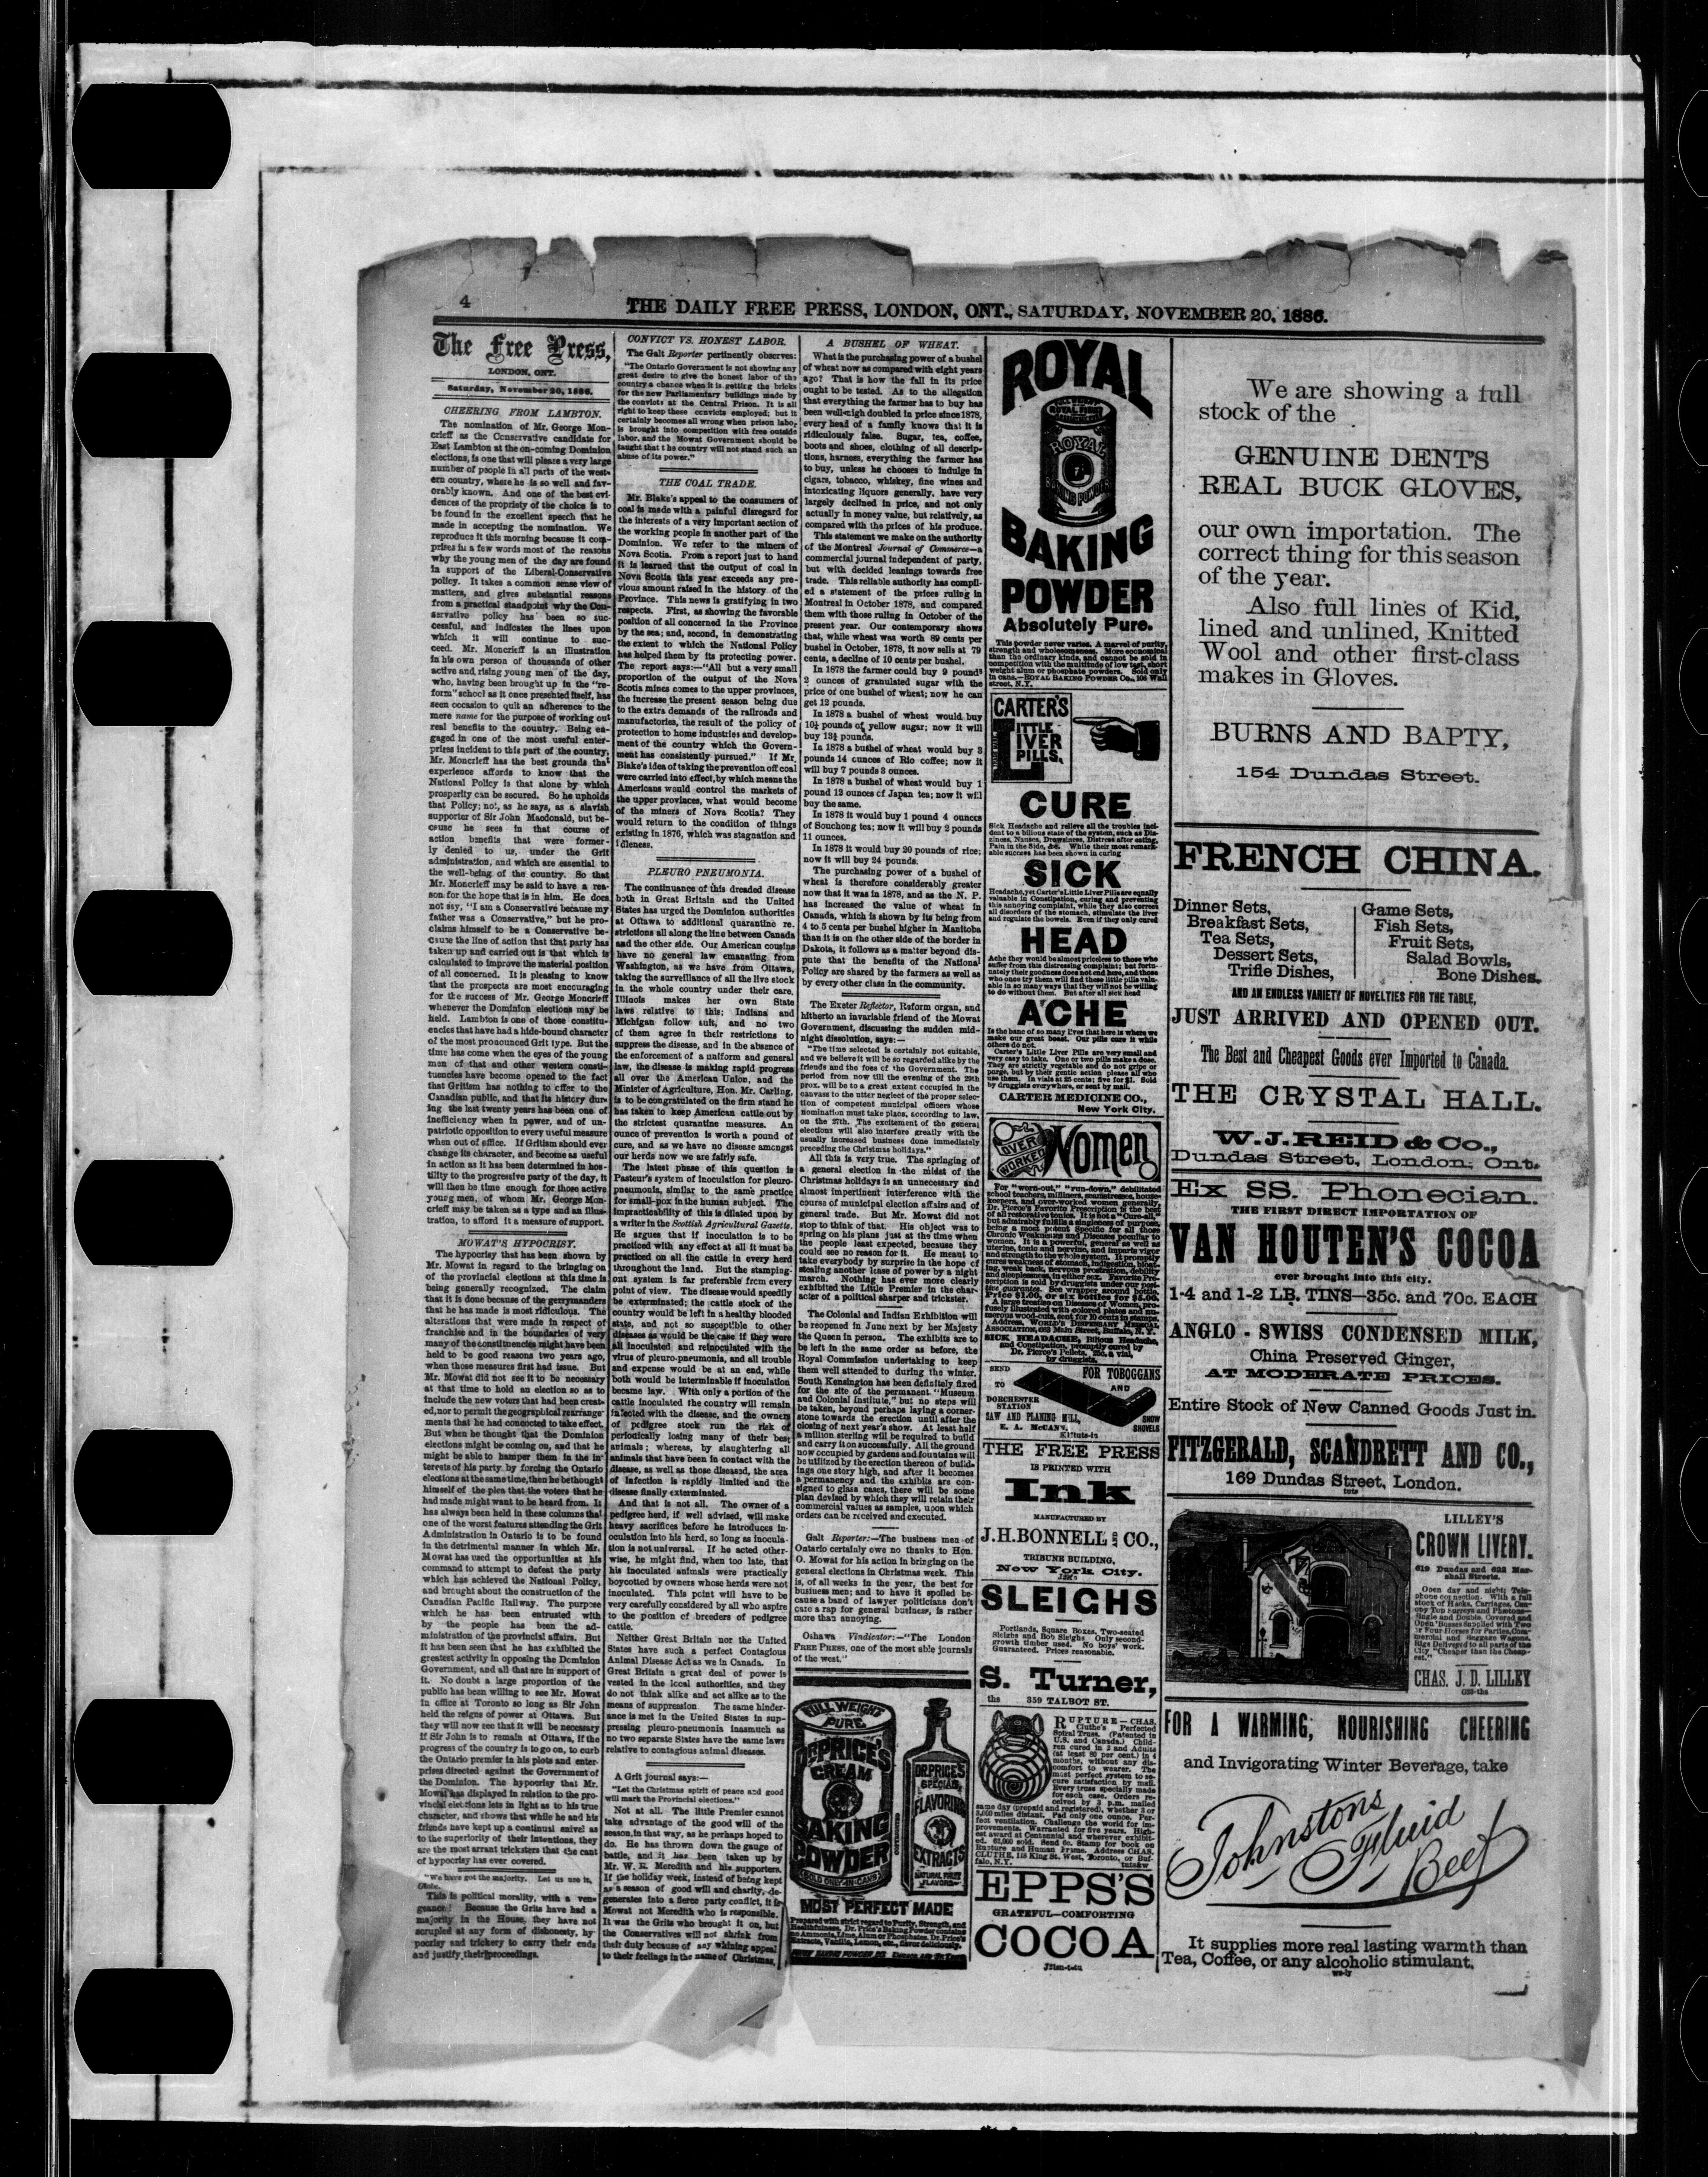 4
THE DAILY FREE PRESS, LONDON, ONT., SATURDAY, NOVEMBER 20, 1886.
The Free Press,
LONDON, ONT.
Saturday, November 20, 1886.
CHEERING FROM LAMBTON.
The nomination of Mr. George Mon-
crieff as the Conservative candidate for
East Lambton at the on-coming Dominion
elections, is one that will please a very large
number of people in all parts of the west-
ern country, where he is so well and fav-
orably known. And one of the best evi-
dences of the propriety of the choice is to
be found in the excellent speech that he
made in accepting the nomination. We
reproduce it this morning because it com-
prises in a few words most of the reasons
why the young men of the day are found
in support of the Liberal-Conservative
policy. It takes a common sense view of
matters, and gives substantial reasons
from a practical standpoint why the Con-
servative policy has been so suc-
cessful, and indicates the lines upon
which it will continue to suc-
ceed. Mr. Moncrieff is an illustration
in his own person of thousands of other
active and rising young men of the day,
who, having been brought up in the "re-
form" school as it once presented itself, has
seen occasion to quit an adherence to the
mere name for the purpose of working out
real benefits to the country. Being en-
gaged in one of the most useful enter-
prises incident to this part of the country,
Mr. Moncrieff has the best grounds that
experience affords to know that the
National Policy is that alone by which
prosperity can be secured. So he upholds
that Policy; not, as he says, as a slavish
supporter of Sir John Macdonald, but be-
cause he sees in that course of
action benefits that were former-
ly denied to us, under the Grit
administration, and which are essential to
the well-being of the country. So that
Mr. Moncrieff may be said to have a rea-
son for the hope that is in him. He does
not say, "I am a Conservative because my
father was a Conservative," but he pro-
claims himself to be a Conservative be-
cause the line of action that that party has
taken up and carried out is that which is
calculated to improve the material position
of all concerned. It is pleasing to know
that the prospects are most encouraging
for the success of Mr. George Moncrieff
whenever the Dominion elections may be
held. Lambton is one of those constitu-
encies that have had a hide-bound character
of the most pronounced Grit type. But the
time has come when the eyes of the young
men of that and other western consti-
tuencies have become opened to the fact
that Gritism has nothing to offer to the
Canadian public, and that its history dur-
ing the last twenty years has been one of
inefficiency when in power, and of un-
patriotic opposition to every useful measure
when out of office. If Gritism should ever
change its character, and become as useful
in action as it has been determined in hos-
tility to the progressive party of the day, it
will then be time enough for those active
young men, of whom Mr. George Mon-
crieff may be taken as a type and an illus-
tration, to afford it a measure of support.
MOWAT'S HYPOCRISY.
The hypocrisy that has been shown by
Mr. Mowat in regard to the bringing on
of the provincial elections at this time is
being generally recognized. The claim
that it is done because of the gerrymanders
that he has made is most ridiculous. The
alterations that were made in respect of
franchise and in the boundaries of very
many of the constituencies might have been
held to be good reasons two years ago,
when those measures first had issue. But
Mr. Mowat did not see it to be necessary
at that time to hold an election so as to
include the new voters that had been creat-
ed, nor to permit the geographical rearrange-
ments that he had concocted to take effect.
But when he thought that the Dominion
elections might be coming on, and that he
might be able to hamper them in the in-
terests of his party by forcing the Ontario
elections at the same time, then he bethought
himself of the plea that the voters that he
had made might want to be heard from. It
has always been held in these columns that
one of the worst features attending the Grit
Administration in Ontario is to be found
in the detrimental manner in which Mr.
Mowat has used the opportunities at his
command to attempt to defeat the party
which has achieved the National Policy,
and brought about the construction of the
Canadian Pacific Railway. The purpose
which he has been entrusted with
by the people has been the ad-
ministration of the provincial affairs. But
it has been seen that he has exhibited the
greatest activity in opposing the Dominion
Government, and all that are in support of
it. No doubt a large proportion of the
public has been willing to see Mr. Mowat
in office at Toronto so long as Sir John
held the reigns of power at Ottawa. But
they will now see that it will be necessary
if Sir John is to remain at Ottawa, if the
progress of the country is to go on, to curb
the Ontario premier in his plots and enter-
prises directed against the Government of
the Dominion. The hypocrisy that Mr.
Mowat has displayed in relation to the pro-
vincial elections lets in light as to his true
character, and shows that while he and his
friends have kept up a continual snivel as
to the superiority of their intentions, they
are the most arrant tricksters that the cant
of hypocrisy has ever covered.
"We have got the majority. Let us use it,
Globe.
This is political morality, with a ven-
geance! Because the Grits have had a
majority in the House, they have not
scrupled at any form of dishonesty, hy-
pocrisy and trickery to carry their ends
and justify their proceedings.
CONVICT VS. HONEST LABOR.
The Galt Reporter pertinently observes:
"The Ontario Government is not showing any
great desire to give the honest labor of the
country a chance when it is getting the bricks
for the new Parliamentary buildings made by
the convicts at the Central Prison. It is all
right to keep these convicts employed; but it
certainly becomes all wrong when prison labor
is brought into competition with free outside
labor, and the Mowat Government should be
taught that the country will not stand such an
abuse of its power."
THE COAL TRADE.
Mr. Blake's appeal to the consumers of
coal is made with a painful disregard for
the interests of a very important section of
the working people in another part of the
Dominion. We refer to the miners of
Nova Scotia. From a report just to hand
it is learned that the output of coal in
Nova Scotia this year exceeds any pre-
vious amount raised in the history of the
Province. This news is gratifying in two
respects. First, as showing the favorable
position of all concerned in the Province
by the sea; and, second, in demonstrating
the extent to which the National Policy
has helped them by its protecting power.
The report says:—"All but a very small
proportion of the output of the Nova
Scotia mines comes to the upper provinces,
the increase the present season being due
to the extra demands of the railroads and
manufactories, the result of the policy of
protection to home industries and develop-
ment of the country which the Govern-
ment has consistently pursued." If Mr.
Blake's idea of taking the prevention off coal
were carried into effect, by which means the
Americans would control the markets of
the upper provinces, what would become
of the miners of Nova Scotia? They
would return to the condition of things
existing in 1876, which was stagnation and
idleness.
PLEURO PNEUMONIA.
The continuance of this dreaded disease
both in Great Britain and the United
States has urged the Dominion authorities
at Ottawa to additional quarantine re-
strictions all along the line between Canada
and the other side. Our American cousins
have no general law emanating from
Washington, as we have from Ottawa,
taking the surveillance of all the live stock
in the whole country under their care.
Illinois makes her own State
laws relative to this; Indiana and
Michigan follow suit, and no two
of them agree in their restrictions to
suppress the disease, and in the absence of
the enforcement of a uniform and general
law, the disease is making rapid progress
all over the American Union, and the
Minister of Agriculture, Hon. Mr. Carling,
is to be congratulated on the firm stand he
has taken to keep American cattle out by
the strictest quarantine measures. An
ounce of prevention is worth a pound of
cure, and as we have no disease amongst
our herds now we are fairly safe.
The latest phase of this question is
Pasteur's system of inoculation for pleuro-
pneumonia, similar to the same practice
for small-pox in the human subject. The
impracticability of this is dilated upon by
a writer in the Scottish Agricultural Gazette.
He argues that if inoculation is to be
practiced with any effect at all it must be
practiced on all the cattle in every herd
throughout the land. But the stamping-
out system is far preferable from every
point of view. The disease would speedily
be exterminated; the cattle stock of the
country would be left in a healthy blooded
state, and not so susceptible to other
diseases as would be the case if they were
all inoculated and reinoculated with the
virus of pleuro-pneumonia, and all trouble
and expense would be at an end, while
both would be interminable if inoculation
became law. With only a portion of the
cattle inoculated the country will remain
infected with the disease, and the owners
of pedigree stock run the risk of
periodically losing many of their best
animals; whereas, by slaughtering all
animals that have been in contact with the
disease, as well as those diseased, the area
of infection is rapidly limited and the
disease finally exterminated.
And that is not all. The owner of a
pedigree herd, if well advised, will make
heavy sacrifices before he introduces in-
oculation into his herd, so long as inocula-
tion is not universal. If he acted other-
wise, he might find, when too late, that
his inoculated animals were practically
boycotted by owners whose herds were not
inoculated. This point will have to be
very carefully considered by all who aspire
to the position of breeders of pedigree
cattle.
Neither Great Britain nor the United
States have such a perfect Contagious
Animal Disease Act as we in Canada. In
Great Britain a great deal of power is
vested in the local authorities, and they
do not think alike and act alike as to the
means of suppression. The same hinder-
ance is met in the United States in sup-
pressing pleuro-pneumonia inasmuch as
no two separate States have the same laws
relative to contagious animal diseases.
A Grit journal says:—
"Let the Christmas spirit of peace and good
will mark the Provincial elections."
Not at all. The little Premier cannot
take advantage of the good will of the
season in that way, as he perhaps hoped to
do. He has thrown down the gauge of
battle, and it has been taken up by
Mr. W. R. Meredith and his supporters.
If the holiday week, instead of being kept
as a season of good will and charity, de-
generates into a fierce party conflict, it is
Mowat not Meredith who is responsible.
It was the Grits who brought it on, but
the Conservatives will not shrink from
their duty because of any whining appeal
to their feelings in the name of Christmas.
A BUSHEL OF WHEAT.
What is the purchasing power of a bushel
of wheat now as compared with eight years
ago? That is how the fall in its price
ought to be tested. As to the allegation
that everything the farmer has to buy has
been well-nigh doubled in price since 1878,
every head of a family knows that it is
ridiculously false. Sugar, tea, coffee,
boots and shoes, clothing of all descrip-
tions, harness, everything the farmer has
to buy, unless he chooses to indulge in
cigars, tobacco, whiskey, fine wines and
intoxicating liquors generally, have very
largely declined in price, and not only
actually in money value, but relatively, as
compared with the prices of his produce.
This statement we make on the authority
of the Montreal Journal of Commerce—a
commercial journal independent of party,
but with decided leanings towards free
trade. This reliable authority has compil-
ed a statement of the prices ruling in
Montreal in October 1878, and compared
them with those ruling in October of the
present year. Our contemporary shows
that, while wheat was worth 89 cents per
bushel in October, 1878, it now sells at 79
cents, a decline of 10 cents per bushel.
In 1878 the farmer could buy 9 pounds
2 ounces of granulated sugar with the
price of one bushel of wheat; now he can
get 12 pounds.
In 1878 a bushel of wheat would buy
10½ pounds of yellow sugar; now it will
buy 13¾ pounds.
In 1878 a bushel of wheat would buy 3
pounds 14 ounces of Rio coffee; now it
will buy 7 pounds 3 ounces.
In 1878 a bushel of wheat would buy 1
pound 12 ounces of Japan tea; now it will
buy the same.
In 1878 it would buy 1 pound 4 ounces
of Souchong tea; now it will buy 2 pounds
11 ounces.
In 1878 it would buy 20 pounds of rice;
now it will buy 24 pounds.
The purchasing power of a bushel of
wheat is therefore considerably greater
now that it was in 1878, and as the N. P.
has increased the value of wheat in
Canada, which is shown by its being from
4 to 5 cents per bushel higher in Manitoba
than it is on the other side of the border in
Dakota, it follows as a matter beyond dis-
pute that the benefits of the National
Policy are shared by the farmers as well as
by every other class in the community.
The Exeter Reflector, Reform organ, and
hitherto an invariable friend of the Mowat
Government, discussing the sudden mid-
night dissolution, says:—
"The time selected is certainly not suitable,
and we believe it will be so regarded alike by the
friends and the foes of the Government. The
period from now till the evening of the 29th
prox. will be to a great extent occupied in the
canvass to the utter neglect of the proper selec-
tion of competent municipal officers whose
nomination must take place, according to law,
on the 27th. The excitement of the general
elections will also interfere greatly with the
usually increased business done immediately
preceding the Christmas holidays."
All this is very true. The springing of
a general election in the midst of the
Christmas holidays is an unnecessary and
almost impertinent interference with the
course of municipal election affairs and of
general trade. But Mr. Mowat did not
stop to think of that. His object was to
spring on his plans just at the time when
the people least expected, because they
could see no reason for it. He meant to
take everybody by surprise in the hope of
stealing another lease of power by a night
march. Nothing has ever more clearly
exhibited the Little Premier in the char-
acter of a political sharper and trickster.
The Colonial and Indian Exhibition will
be reopened in June next by her Majesty
the Queen in person. The exhibits are to
be left in the same order as before, the
Royal Commission undertaking to keep
them well attended to during the winter.
South Kensington has been definitely fixed
for the site of the permanent "Museum
and Colonial Institute," but no steps will
be taken, beyond perhaps laying a corner-
stone towards the erection until after the
closing of next year's show. At least half
a million sterling will be required to build
and carry it on successfully. All the ground
now occupied by gardens and fountains will
be utilized by the erection thereon of build-
ings one story high, and after it becomes
a permanency and the exhibits are con-
signed to glass cases, there will be some
plan devised by which they will retain their
commercial values as samples, upon which
orders can be received and executed.
Galt Reporter:—The business men of
Ontario certainly owe no thanks to Hon.
O. Mowat for his action in bringing on the
general elections in Christmas week. This
is, of all weeks in the year, the best for
business men; and to have it spoiled be-
cause a band of lawyer politicians don't
care a rap for general business, is rather
more than annoying.
Oshawa Vindicator:—"The London
FREE PRESS, one of the most able journals
of the west."
FULL WEIGHT
PURE
DR PRICE'S
CREAM
BAKING
POWDER
SOLD ONLY IN CANS
DR PRICE'S
SPECIAL
FLAVORING
EXTRACTS
NATURAL FRUIT
FLAVORS
MOST PERFECT MADE
Prepared with strict regard to Purity, Strength, and
Healthfulness. Dr. Price's Baking Powder contains
no Ammonia, Lime, Alum or Phosphates. Dr. Price's
Extracts, Vanilla, Lemon, etc., flavor deliciously.
ROYAL
FULL WEIGHT
ROYAL
BAKING POWDER
BAKING
POWDER
Absolutely Pure.
This powder never varies. A marvel of purity,
strength and wholesomeness. More economical
than the ordinary kinds, and cannot be sold in
competition with the multitude of low test, short
weight alum or phosphate powders. Sold only
in cans.—ROYAL BAKING POWDER Co., 106 Wall
street, N.Y.
CARTER'S
LITTLE
LIVER
PILLS.
CURE
Sick Headache and relieve all the troubles inci-
dent to a bilious state of the system, such as Diz-
ziness, Nausea, Drowsiness, Distress after eating,
Pain in the Side, &c. While their most remark-
able success has been shown in curing
SICK
Headache, yet Carter's Little Liver Pills are equally
valuable in Constipation, curing and preventing
this annoying complaint, while they also correct
all disorders of the stomach, stimulate the liver
and regulate the bowels. Even if they only cured
HEAD
Ache they would be almost priceless to those who
suffer from this distressing complaint; but fortu-
nately their goodness does not end here, and those
who once try them will find these little pills valu-
able in so many ways that they will not be willing
to do without them. But after all sick head
ACHE
Is the bane of so many lives that here is where we
make our great boast. Our pills cure it while
others do not.
Carter's Little Liver Pills are very small and
very easy to take. One or two pills make a dose.
They are strictly vegetable and do not gripe or
purge, but by their gentle action please all who
use them. In vials at 25 cents; five for $1. Sold
by druggists everywhere, or sent by mail.
CARTER MEDICINE CO.,
New York City.
OVER
WORKED
Women
For "worn-out," "run-down," debilitated
school teachers, milliners, seamstresses, house-
keepers, and over-worked women generally,
Dr. Pierce's Favorite Prescription is the best
of all restorative tonics. It is not a "Cure-all,"
but admirably fulfills a singleness of purpose,
being a most potent Specific for all those
Chronic Weaknesses and Diseases peculiar to
women. It is a powerful, general as well as
uterine, tonic and nervine, and imparts vigor
and strength to the whole system. It promptly
cures weakness of stomach, indigestion, bloat-
ing, weak back, nervous prostration, debility
and sleeplessness, in either sex. Favorite Pre-
scription is sold by druggists under our posi-
tive guarantee. See wrapper around bottle.
Price $1.00, or six bottles for $5.00.
A large treatise on Diseases of Women, pro-
fusely illustrated with colored plates and nu-
merous wood-cuts, sent for 10 cents in stamps.
Address, WORLD'S DISPENSARY MEDICAL
ASSOCIATION, 663 Main Street, Buffalo, N. Y.
SICK HEADACHE, Bilious Headache,
and Constipation, promptly cured by
Dr. Pierce's Pellets. 25c. a vial,
by druggists.
SEND
TO
DORCHESTER
STATION
SAW AND PLANING MILL,
E. A. McCANN,
FOR TOBOGGANS
AND
SNOW
SHOVELS
THE FREE PRESS
IS PRINTED WITH
Ink
MANUFACTURED BY
J.H. BONNELL & CO.,
TRIBUNE BUILDING,
New York City.
SLEIGHS
Portlands, Square Boxes, Two-seated
Sleighs and Bob Sleighs. Only second-
growth timber used. No boys' work.
Guaranteed. Prices reasonable.
S. Turner,
ths 359 TALBOT ST.
RUPTURE—CHAS.
Cluthe's Perfected
Spiral Truss. (Patented in
U.S. and Canada.) Child-
ren cured in 2 and Adults
(at least 80 per cent.) in 4
months, without any dis-
comfort to wearer. The
most perfect system to se-
cure satisfaction by mail.
Every truss specially made
for each case. Orders re-
ceived by 3 p.m. mailed
same day (prepaid and registered), whether 3 or
3,000 miles distant. Pad only one ounce. Per-
fect ventilation. Challenge the world for im-
provements. Warranted for five years. High-
est award at Centennial and wherever exhibit-
ed. 62,000 sold. Send 6c. Stamp for book on
Rupture and Human Frame. Address CHAS.
CLUTHE, 118 King St. West, Toronto, or Buf-
falo, N.Y.
EPPS'S
GRATEFUL—COMFORTING
COCOA
We are showing a full
stock of the
GENUINE DENT'S
REAL BUCK GLOVES,
our own importation. The
correct thing for this season
of the year.
Also full lines of Kid,
lined and unlined, Knitted
Wool and other first-class
makes in Gloves.
BURNS AND BAPTY,
154 Dundas Street.
FRENCH CHINA.
Dinner Sets,
Breakfast Sets,
Tea Sets,
Dessert Sets,
Trifle Dishes,
Game Sets,
Fish Sets,
Fruit Sets,
Salad Bowls,
Bone Dishes.
AND AN ENDLESS VARIETY OF NOVELTIES FOR THE TABLE,
JUST ARRIVED AND OPENED OUT.
The Best and Cheapest Goods ever Imported to Canada.
THE CRYSTAL HALL.
W. J. REID & Co.,
Dundas Street, London, Ont.
Ex SS. Phonecian.
THE FIRST DIRECT IMPORTATION OF
VAN HOUTEN'S COCOA
ever brought into this city.
1-4 and 1-2 LB. TINS—35c. and 70c. EACH
ANGLO-SWISS CONDENSED MILK,
China Preserved Ginger,
AT MODERATE PRICES.
Entire Stock of New Canned Goods Just in.
FITZGERALD, SCANDRETT AND CO.,
169 Dundas Street, London.
tuts
LILLEY'S
CROWN LIVERY.
619 Dundas and 622 Mar-
shall Streets.
Open day and night; Tele-
phone connection. With a full
stock of Hacks, Carriages, Can-
opy Top Surreys and Phætons—
Single and Double, Covered and
Open 'Busses supplied with Two
or Four Horses for Parties, Com-
mercial and Baggage Wagons.
Rigs Delivered to all parts of the
city. "Cheaper than the Cheap-
est."
CHAS. J. D. LILLEY
FOR A WARMING, NOURISHING CHEERING
and Invigorating Winter Beverage, take
Johnston's
Fluid
Beef
It supplies more real lasting warmth than
Tea, Coffee, or any alcoholic stimulant.